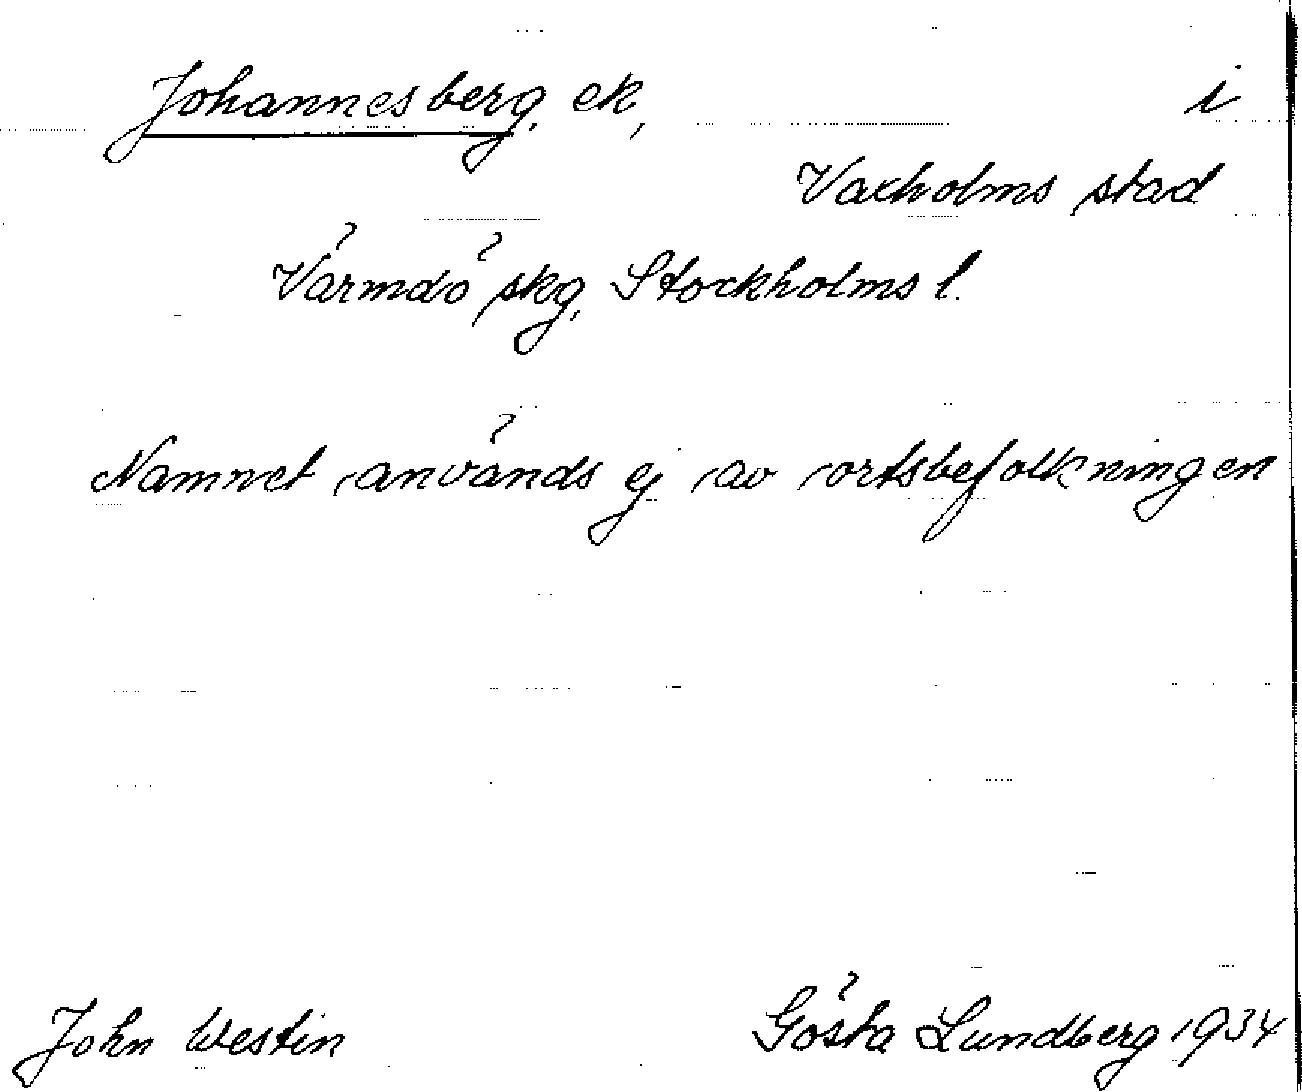 Johannesberg, ek, i
Vaxholms stad
Värmdö skg, Stockholms l.
Namnet används ej av ortsbefolkningen
John Westin Gösta Lundberg 1934